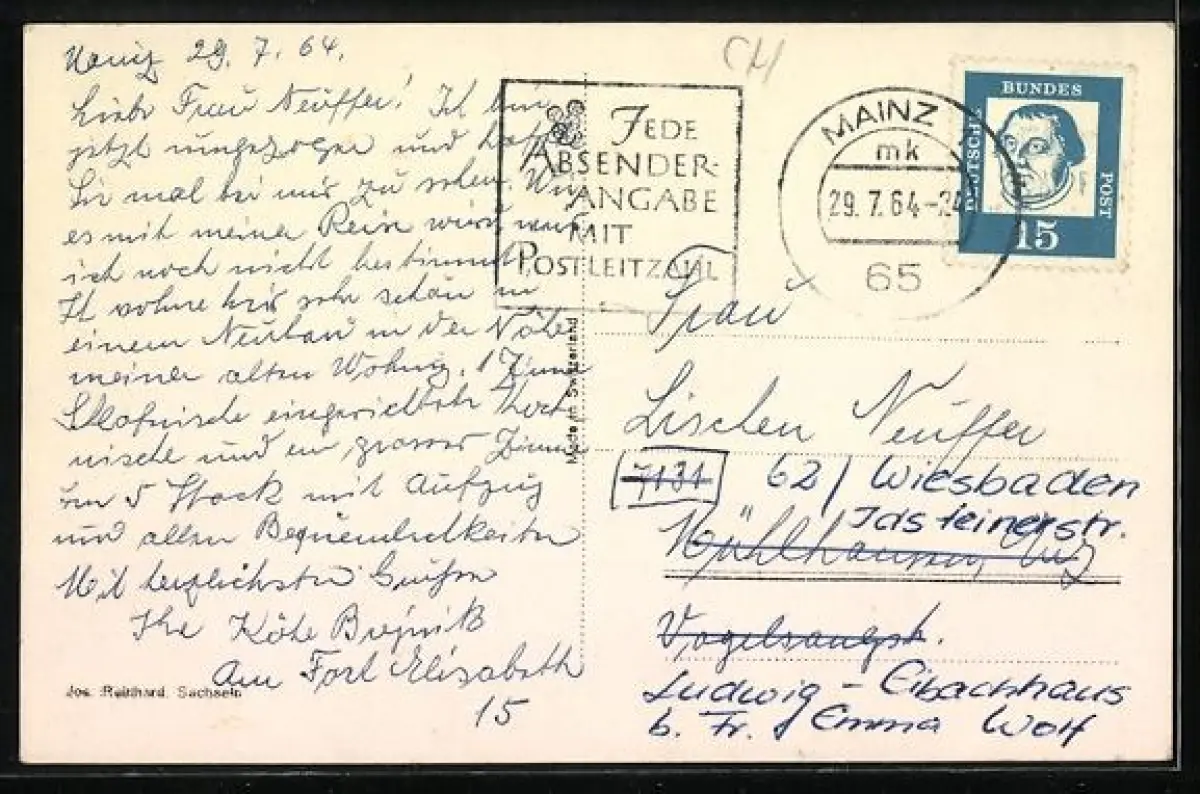 Mainz 29. 7. 64.
Liebe Frau Neuffer! Ich bin
jetzt umgezogen und hoffe
Sie mal bei mir zu sehen. Wie
es mit meiner Reise wird weiß
ich noch nicht bestimmt.
Ich wohne hier sehr schön in
einem Neubau in der Nähe
meiner alten Wohnung. 1 Zimmer
Schlafnische eingerichtete Koch-
nische und ein grosses Zimmer
im 5 Stock mit Aufzug
und allen Bequemlichkeiten
Mit herzlichsten Grüßen
Ihre Käte
Am Fort Elisabeth
15
Jos. Reinhard, Sachseln
Made in Switzerland
JEDE
ABSENDER-
ANGABE
MIT
POSTLEITZAHL
MAINZ
mk
29.7.64-24
65
DEUTSCHE
BUNDES
POST
15
Frau
Lischen Neuffer
7131 62 / Wiesbaden
Idsteinerstr.
Mühlhausen
Vogelsangstr.
Ludwig - Eibachhaus
b. Fr. Emma Wolf